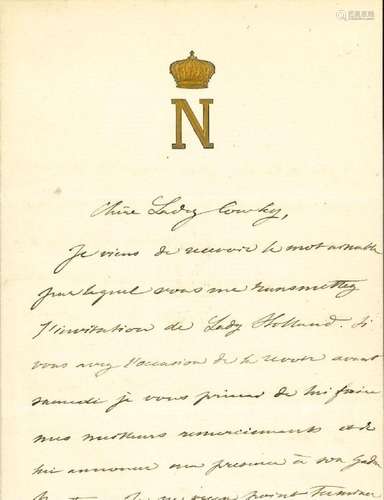 N
Chère Lady Cowley,
Je viens de recevoir le mot aimable
par lequel vous me transmettez
l'invitation de Lady Holland. Si
vous avez l'occasion de la revoir avant
samedi je vous prierai de lui faire
mes meilleurs remerciements et de
lui annoncer ma présence à son
point terminer